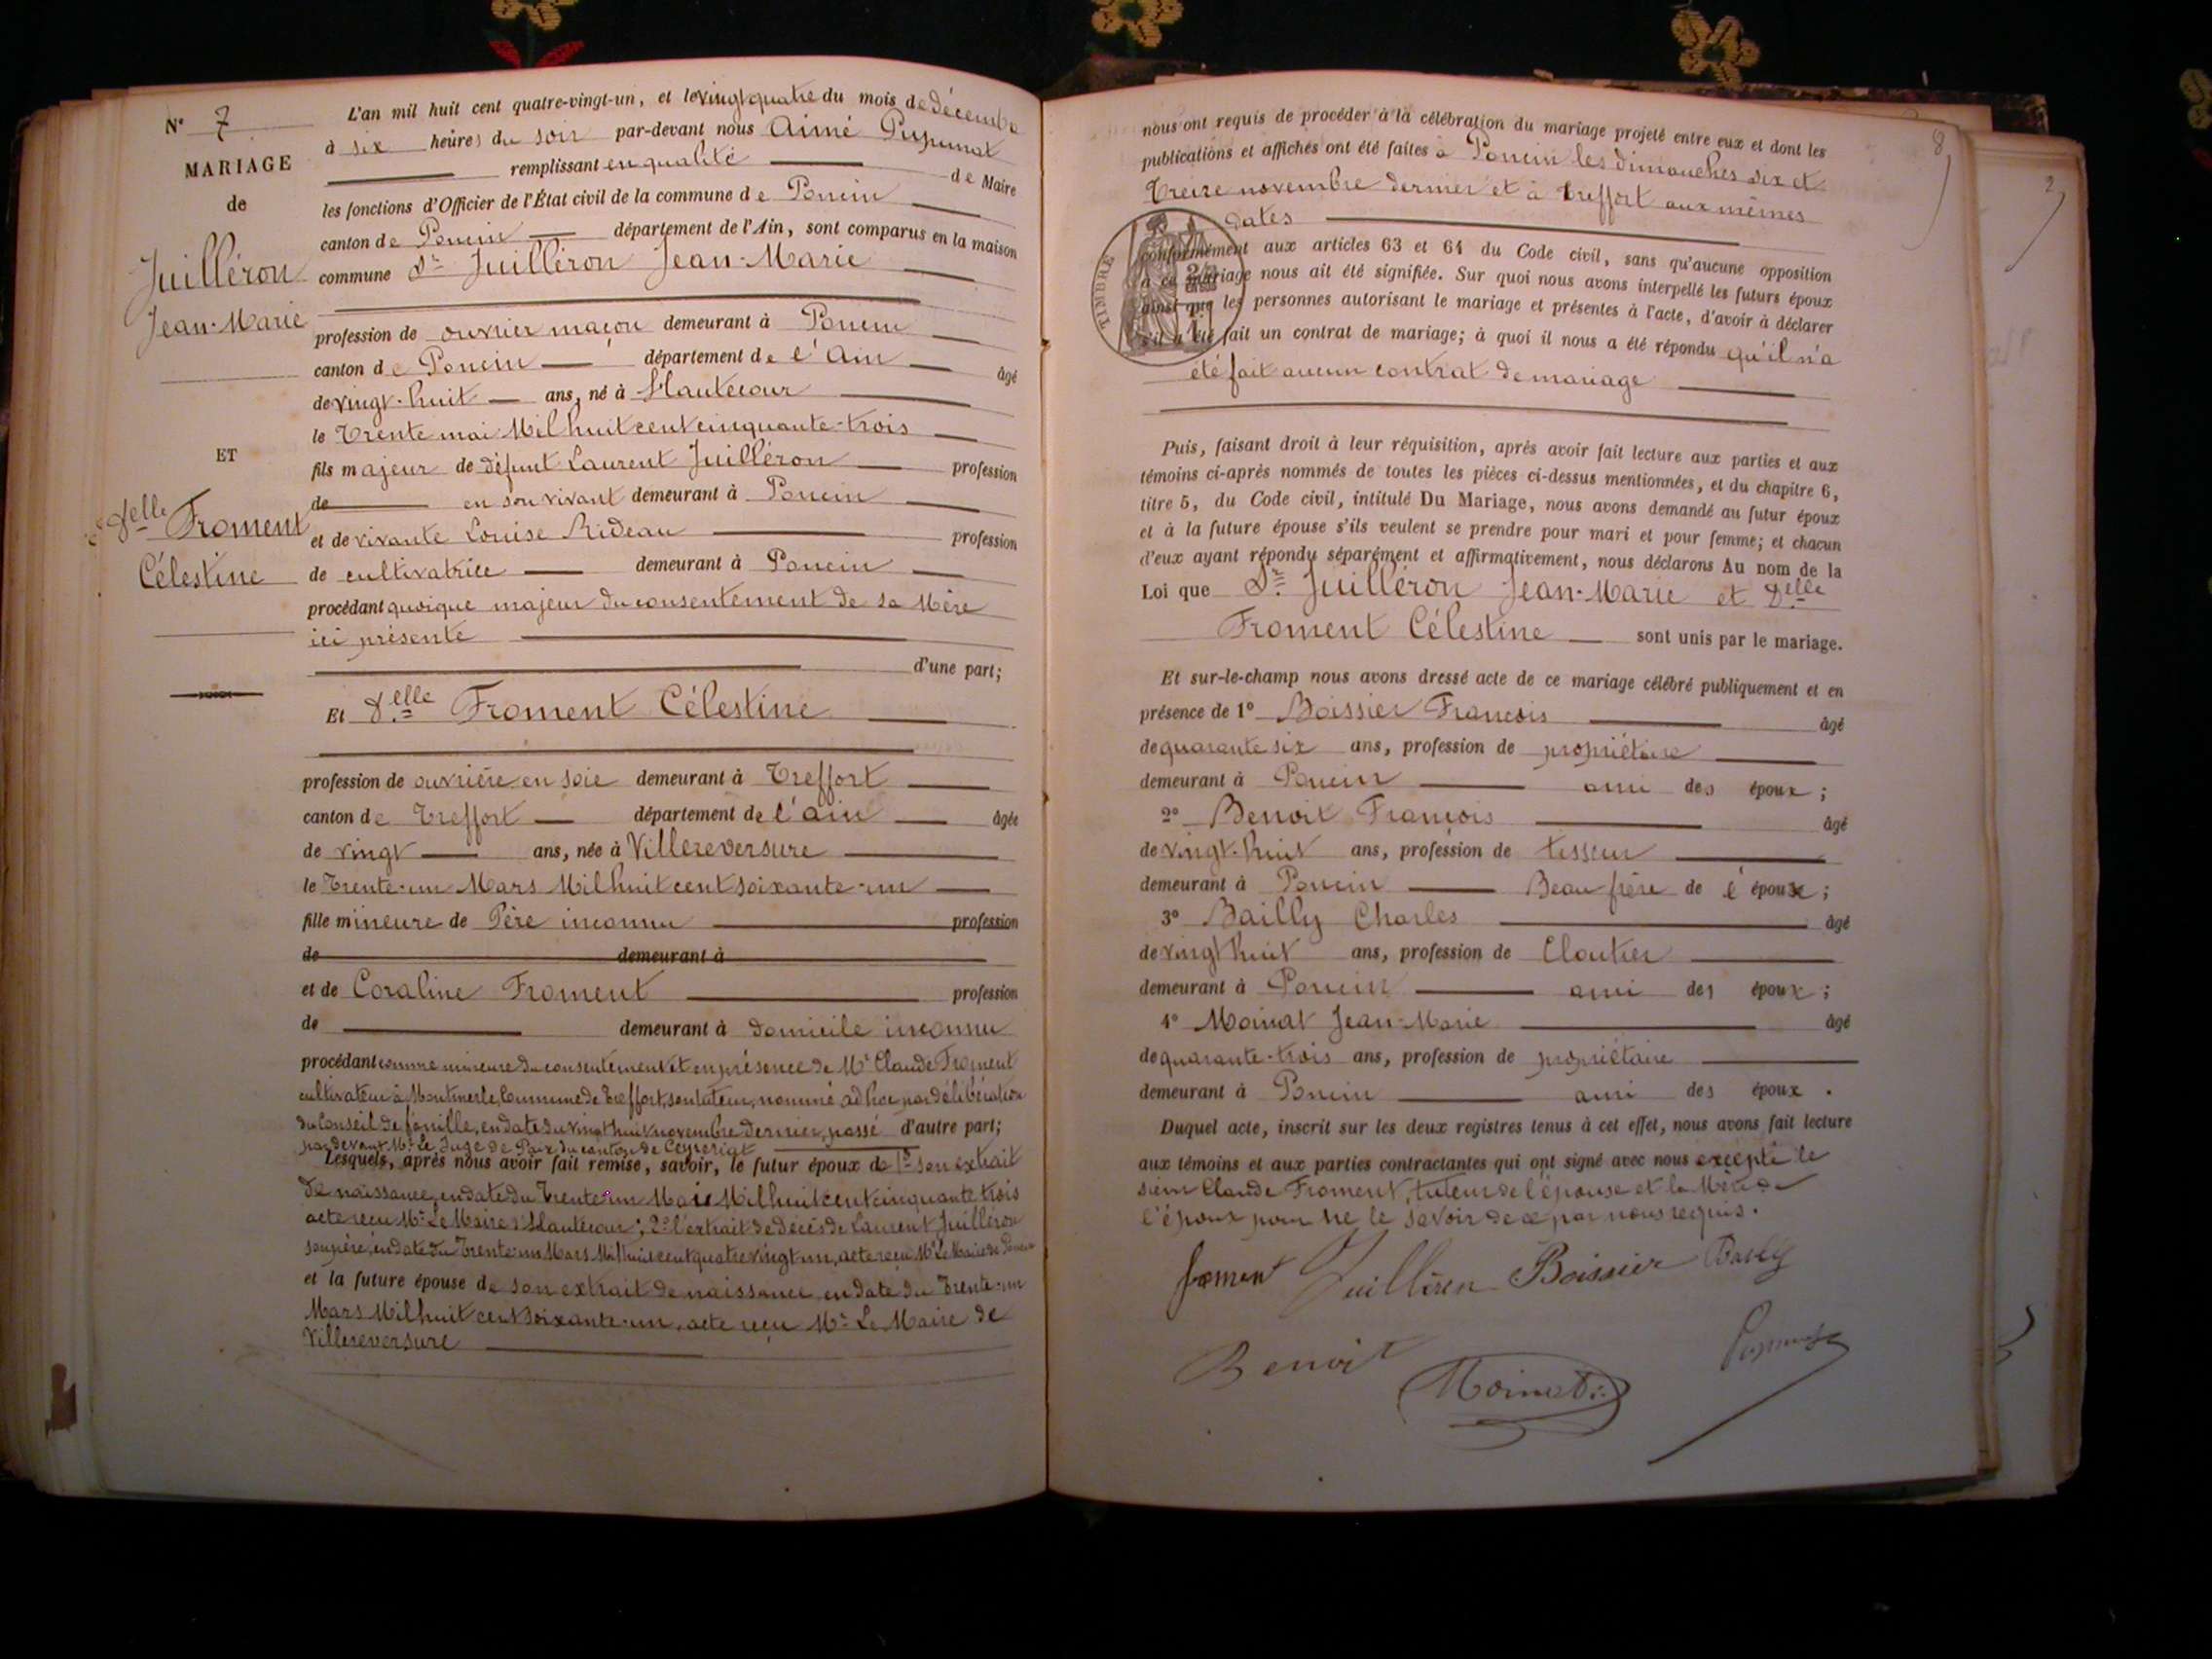 N° 7
MARIAGE
de
Juilléron
Jean-Marie
ET
Delle Froment
Célestine
L'an mil huit cent quatre-vingt-un, et le vingt quatre du mois de décembre
à six heures du soir par-devant nous Aimé Pupunat
remplissant en qualité de Maire
les fonctions d'Officier de l'État civil de la commune de Poncin
canton de Poncin département de l'Ain, sont comparus en la maison
commune Sr Juilléron Jean-Marie
profession de ouvrier maçon demeurant à Poncin
canton de Poncin département de l'Ain âgé
de vingt-huit ans, né à Hautecour
le Trente mai Mil huit cent cinquante-trois
fils majeur de défunt Laurent Juilléron profession
de en son vivant demeurant à Poncin
et de vivante Louise Rideau profession
de cultivatrice demeurant à Poncin
procédant quoique majeur du consentement de sa Mère
ici présente
d'une part;
Et Delle Froment Célestine
profession de ouvrière en soie demeurant à Treffort
canton de Treffort département de l'Ain âgée
de vingt ans, née à Villereversure
le Trente-un Mars Mil huit cent soixante-un
fille mineure de Père inconnu profession
de demeurant à
et de Coraline Froment profession
de demeurant à domicile inconnu
procédant comme mineure du consentement et en présence de Mr Claude Froment
cultivateur à Montmerle, Commune de Treffort, son tuteur, nommé ad hoc par délibération
du Conseil de famille, en date du vingt huit novembre dernier, passé d'autre part;
par devant Mr Le Juge de Paix du canton de Ceyzeriat
Lesquels, après nous avoir fait remise, savoir, le futur époux de 1° son extrait
de naissance, en date du Trente un Mai Mil huit cent cinquante trois
acte reçu Mr Le Maire d'Hautecour; 2° l'extrait de décès de Laurent Juilléron
son père, en date du Trente-un Mars Mil huit cent quatre vingt un, acte reçu Mr Le Maire de Poncin
et la future épouse de son extrait de naissance, en date du Trente-un
Mars Mil huit cent soixante-un, acte reçu Mr Le Maire de
Villereversure
8
nous ont requis de procéder à la célébration du mariage projeté entre eux et dont les
publications et affiches ont été faites à Poncin les dimanches six et
Treize novembre dernier et à Treffort aux mêmes
dates
TIMBRE
conformément aux articles 63 et 64 du Code civil, sans qu'aucune opposition
à ce mariage nous ait été signifiée. Sur quoi nous avons interpellé les futurs époux
ainsi que les personnes autorisant le mariage et présentes à l'acte, d'avoir à déclarer
s'il a été fait un contrat de mariage; à quoi il nous a été répondu qu'il n'a
été fait aucun contrat de mariage
Puis, faisant droit à leur réquisition, après avoir fait lecture aux parties et aux
témoins ci-après nommés de toutes les pièces ci-dessus mentionnées, et du chapitre 6,
titre 5, du Code civil, intitulé Du Mariage, nous avons demandé au futur époux
et à la future épouse s'ils veulent se prendre pour mari et pour femme; et chacun
d'eux ayant répondu séparément et affirmativement, nous déclarons Au nom de la
Loi que Sr Juilléron Jean-Marie et Delle
Froment Célestine sont unis par le mariage.
Et sur-le-champ nous avons dressé acte de ce mariage célébré publiquement et en
présence de 1° Boissier François âgé
de quarante six ans, profession de propriétaire
demeurant à Poncin ami des époux;
2° Benoit François âgé
de vingt-huit ans, profession de tisseur
demeurant à Poncin Beau frère de l'époux;
3° Bailly Charles âgé
de vingt huit ans, profession de Cloutier
demeurant à Poncin ami des époux;
4° Moinat Jean-Marie âgé
de quarante-trois ans, profession de propriétaire
demeurant à Poncin ami des époux.
Duquel acte, inscrit sur les deux registres tenus à cet effet, nous avons fait lecture
aux témoins et aux parties contractantes qui ont signé avec nous excepté le
sieur Claude Froment, tuteur de l'épouse et la Mère de
l'époux pour ne le savoir de ce par nous requis.
froment Juilléron Boissier Bailly
Benoit Moinat Pupunat